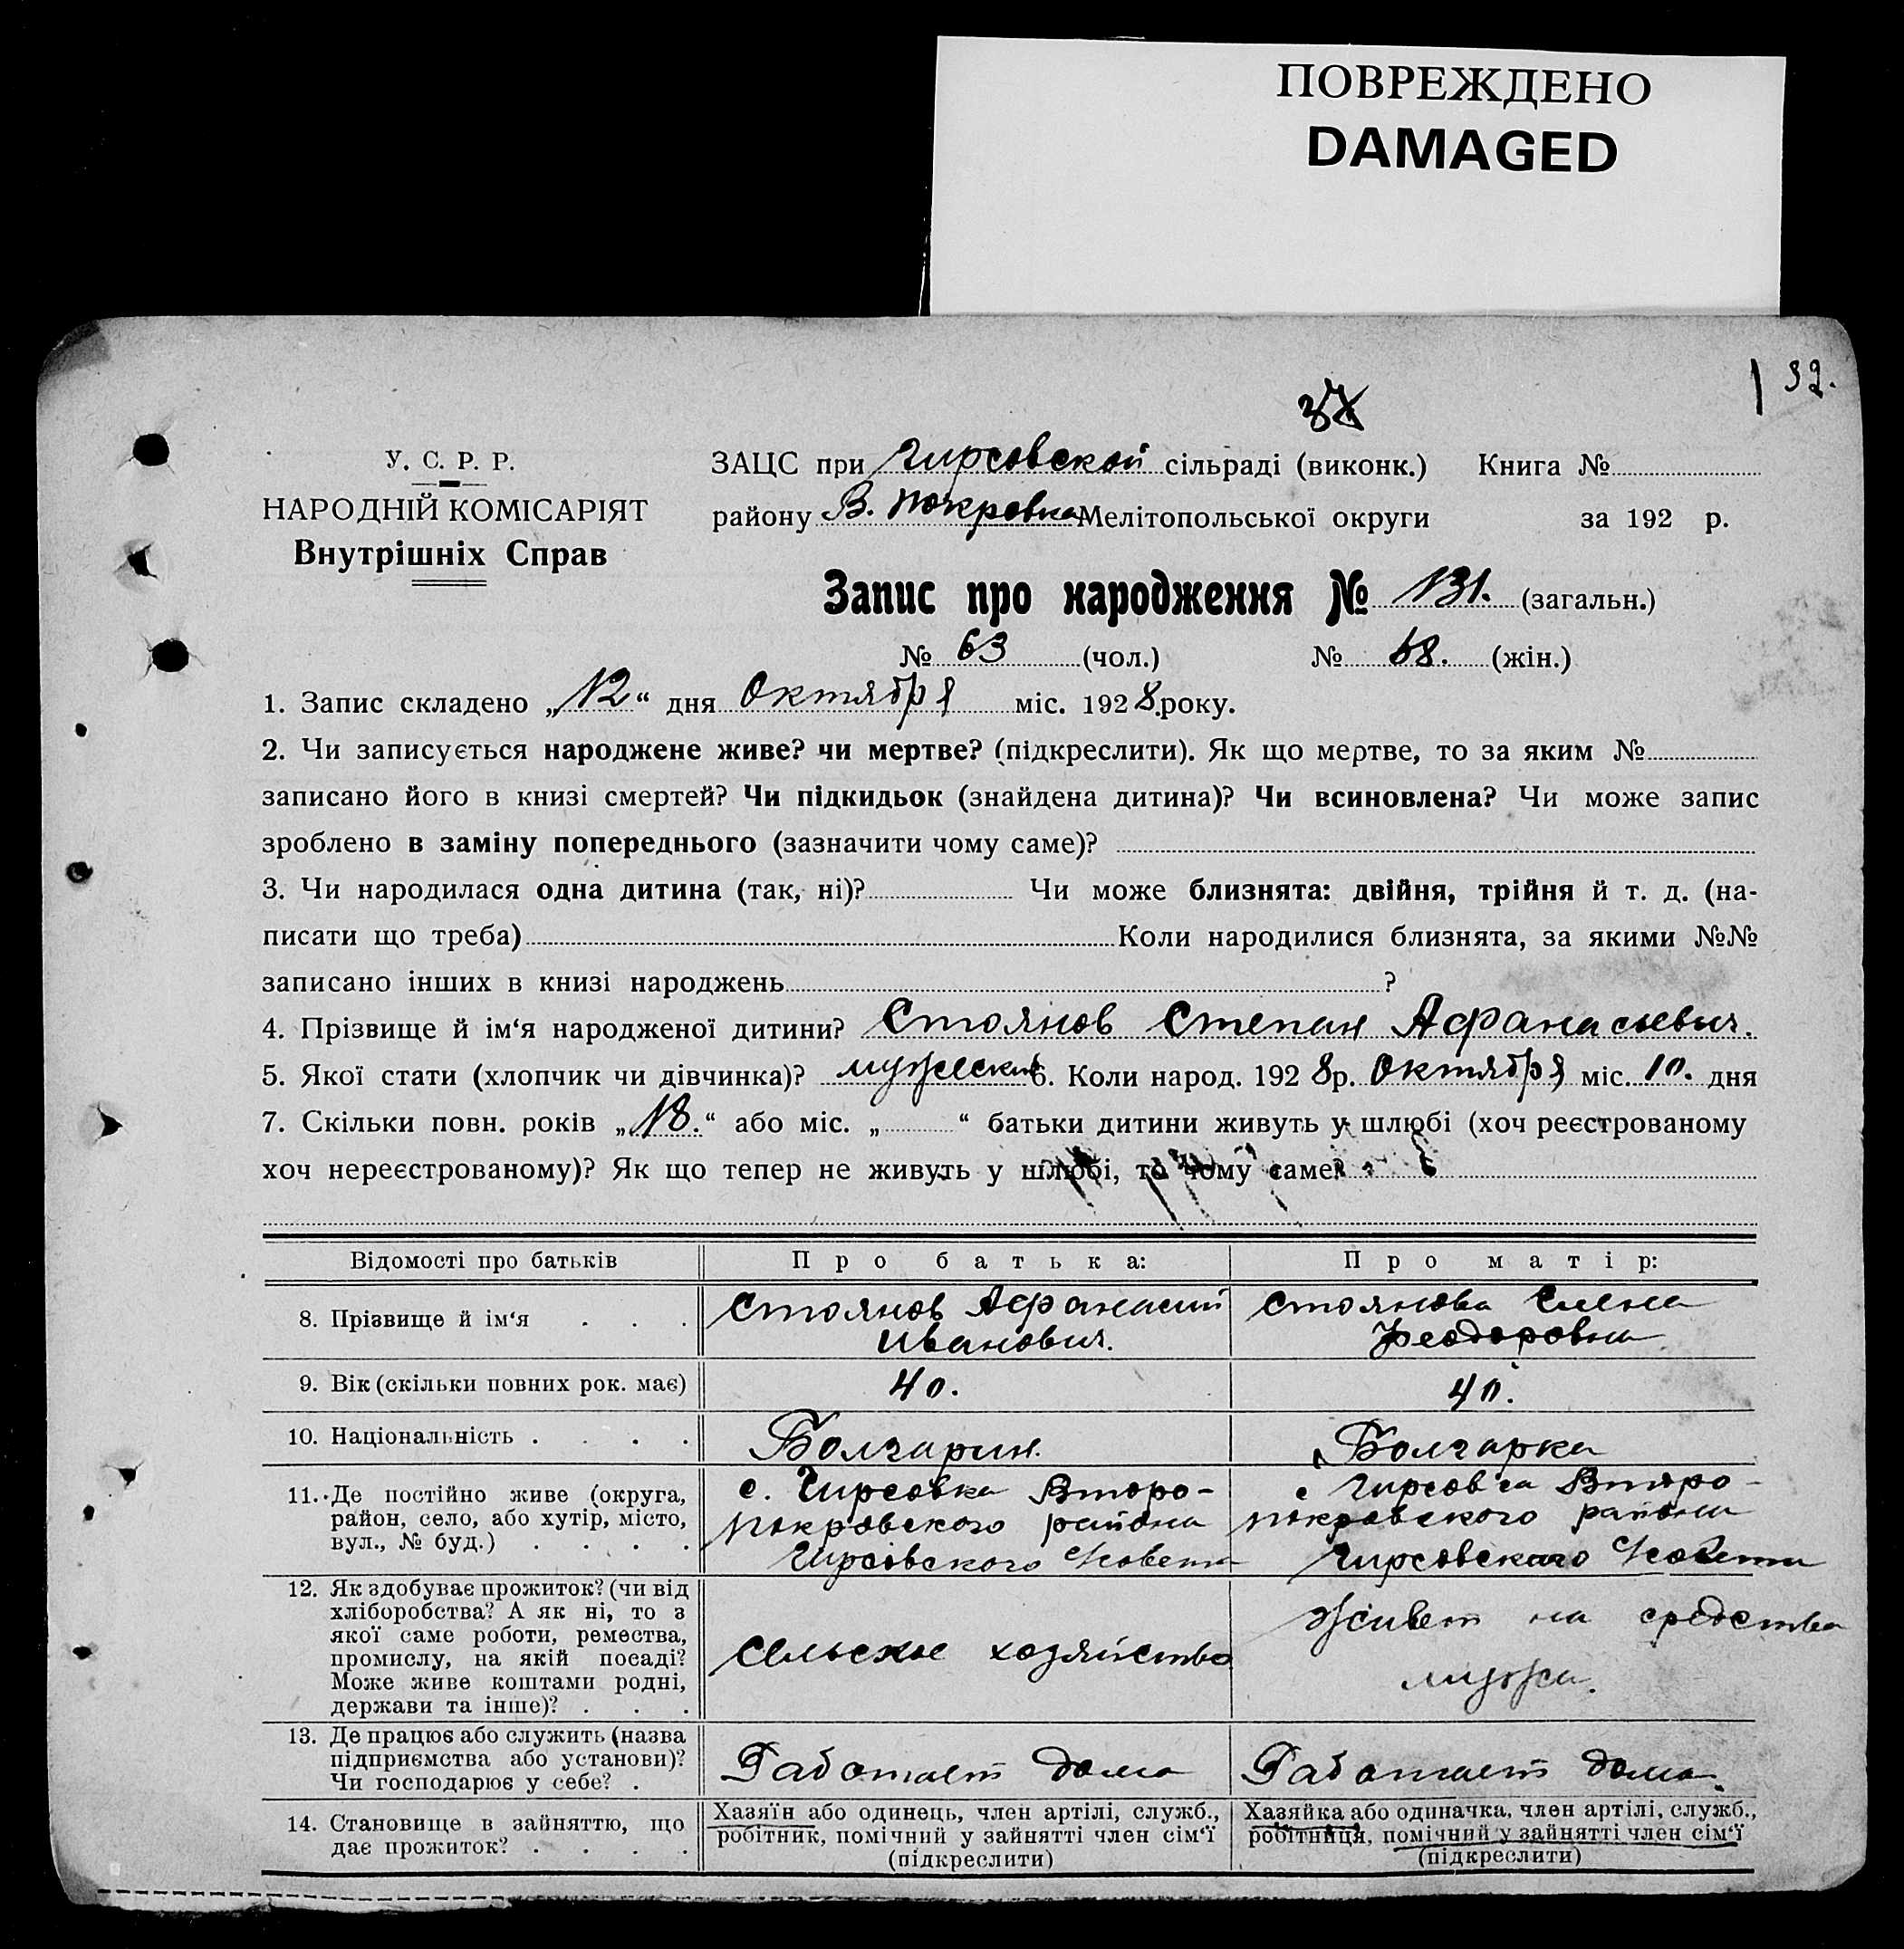 ПОВРЕЖДЕНО
DAMAGED
32.
37
У. С. Р. Р.
НАРОДНІЙ КОМІСАРІЯТ
Внутрішніх Справ
ЗАЦС при Гирсовской сільраді (виконк.) Книга №
району В. Покровка Мелітопольської округи за 192 р.
Запис про народження № 131. (загальн.)
№ 63 (чол.) № 68. (жін.)
1. Запис складено „12“ дня Октября міс. 1928.року.
2. Чи записується народжене живе? чи мертве? (підкреслити). Як що мертве, то за яким №
записано його в книзі смертей? Чи підкидьок (знайдена дитина)? Чи всиновлена? Чи може запис
зроблено в заміну попереднього (зазначити чому саме)?
3. Чи народилася одна дитина (так, ні)? Чи може близнята: двійня, трійня й т. д. (на-
писати що треба) Коли народилися близнята, за якими №№
записано інших в книзі народжень ?
4. Прізвище й ім‘я народженої дитини? Стоянов Степан Афанасьевич.
5. Якої стати (хлопчик чи дівчинка)? мужеский 6. Коли народ. 1928р. Октября міс. 10. дня
7. Скільки повн. років „18.“ або міс. „ “ батьки дитини живуть у шлюбі (хоч реєстрованому
хоч нереєстрованому)? Як що тепер не живуть у шлюбі, то чому саме?
Відомості про батьків Про батька: Про матір:
8. Прізвище й ім‘я . . .
Стоянов Афанасий
Иванович.
Стоянова Елена
Феодоровна
9. Вік (скільки повних рок. має) 40. 40.
10. Національність . . . . Болгарин. Болгарка
11. Де постійно живе (округа,
район, село, або хутір, місто,
вул., № буд.) . . . .
с. Гирсовка Второ-
покровского района
Гирсовского Совета
с Гирсовка Второ-
покровского района
Гирсовскаго Совета
12. Як здобуває прожиток? (чи від
хліборобства? А як ні, то з
якої саме роботи, ремества,
промислу, на якій посаді?
Може живе коштами родні,
держави та інше)? . . .
Сельское хозяйство
Живет на средства
мужа.
13. Де працює або служить (назва
підприємства або установи)?
Чи господарює у себе? .
Работает дома
Работает дома.
14. Становище в зайняттю, що
дає прожиток? . . . .
Хазяїн або одинець, член артілі, служб.,
робітник, помічний у зайнятті член сім‘ї
(підкреслити)
Хазяйка або одиначка, член артілі, служб.,
робітниця, помічний у зайнятті член сім‘ї
(підкреслити)